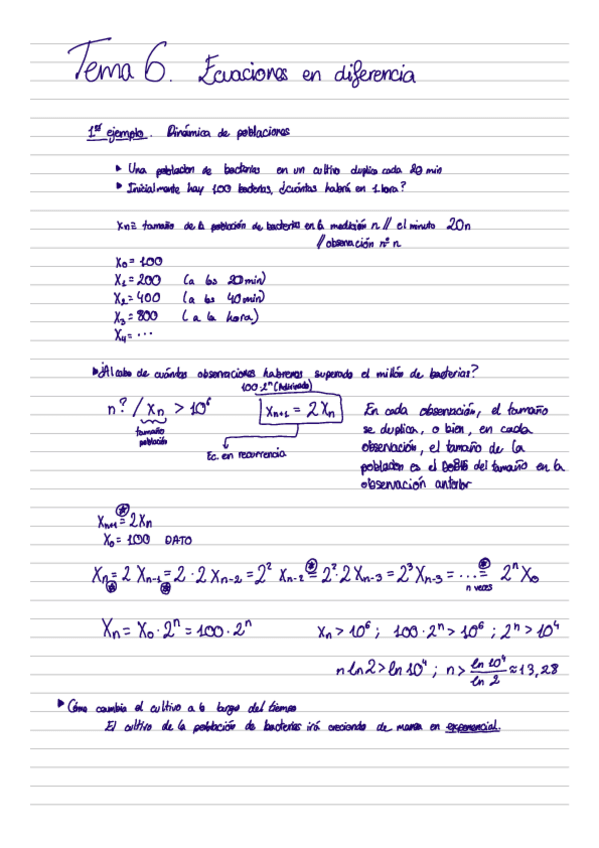 Tema 6. Ecuaciones en diferencia
1er ejemplo. Dinámica de poblaciones
▸ Una poblacion de bacterias en un cultivo duplica cada 20 min
▸ Inicialmente hay 100 bacterias, ¿cuántas habrá en 1 hora?
Xn ≡ tamaño de la población de bacterias en la medición n // el minuto 20n
// observación nº n
X₀ = 100
X₁ = 200 (a los 20 min)
X₂ = 400 (a los 40 min)
X₃ = 800 (a la hora)
X₄ = ...
▸ ¿Al cabo de cuántas observaciones habremos superado el millón de bacterias?
100·2ⁿ (Adivinado)
n? / Xn > 10⁶
tamaño
población
Xn+1 = 2Xn
Ec. en recurrencia
En cada observación, el tamaño
se duplica, o bien, en cada
observación, el tamaño de la
poblacion es el DOBLE del tamaño en la
observación anterior
Xn+1 = 2Xn
X₀ = 100 DATO
Xn = 2 Xn-1 = 2 · 2 Xn-2 = 2² Xn-2 = 2² · 2 Xn-3 = 2³ Xn-3 = ... = 2ⁿ X₀
n veces
Xn = X₀ · 2ⁿ = 100 · 2ⁿ
Xn > 10⁶ ; 100 · 2ⁿ > 10⁶ ; 2ⁿ > 10⁴
n ln 2 > ln 10⁴ ; n > ln 10⁴ / ln 2 ≈ 13,28
▸ Cómo cambia el cultivo a lo largo del tiempo
El cultivo de la población de bacterias irá creciendo de manera en exponencial.